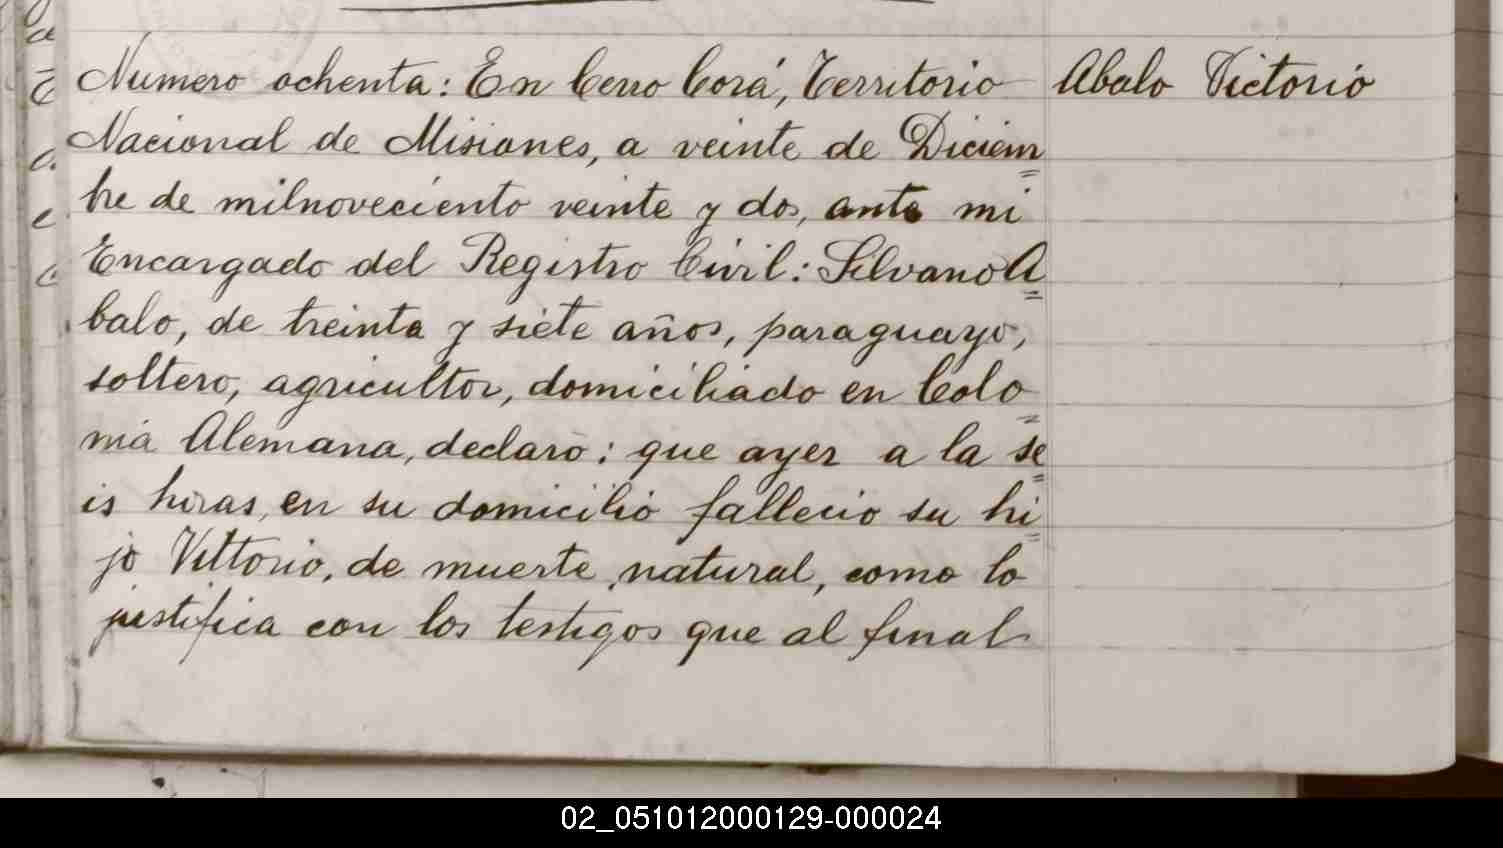 Numero ochenta: En Cerro Corá, Territorio
Abalo Victorio
Nacional de Misiones, a veinte de Diciem=
bre de milnoveciento veinte y dos, ante mi
Encargado del Registro Civil: Silvano A=
balo, de treinta y siete años, paraguayo,
soltero, agricultor, domiciliado en Colo=
nia Alemana, declaró: que ayer a la se=
is horas, en su domicilio fallecio su hi=
jo Vittorio, de muerte natural, como lo
justifica con los testigos que al final
02_051012000129-000024